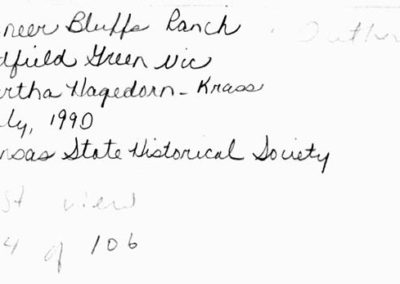 neer Bluffs Ranch
dfield Green vic
rtha Hagedorn-Krass
ly, 1990
nsas State Historical Society
st view
4 of 106